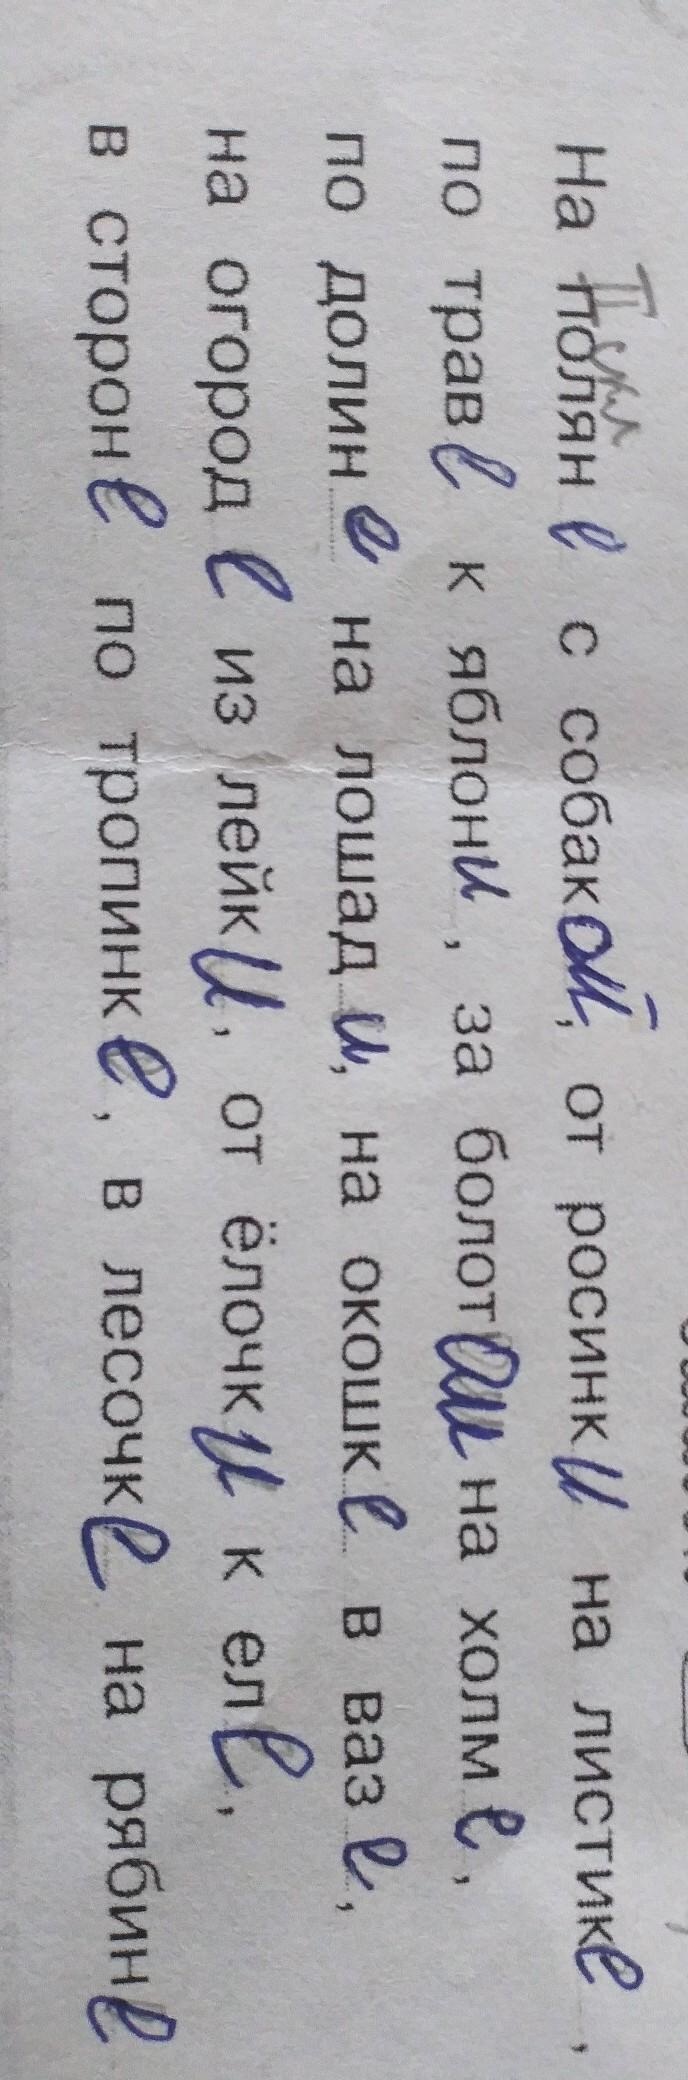 II скл
На поляне с собакой, от росинки на листике,
по траве к яблони, за болотам на холме,
по долине на лошади, на окошке в вазе,
на огороде из лейки, от ёлочки к еле,
в стороне по тропинке, в лесочке на рябине